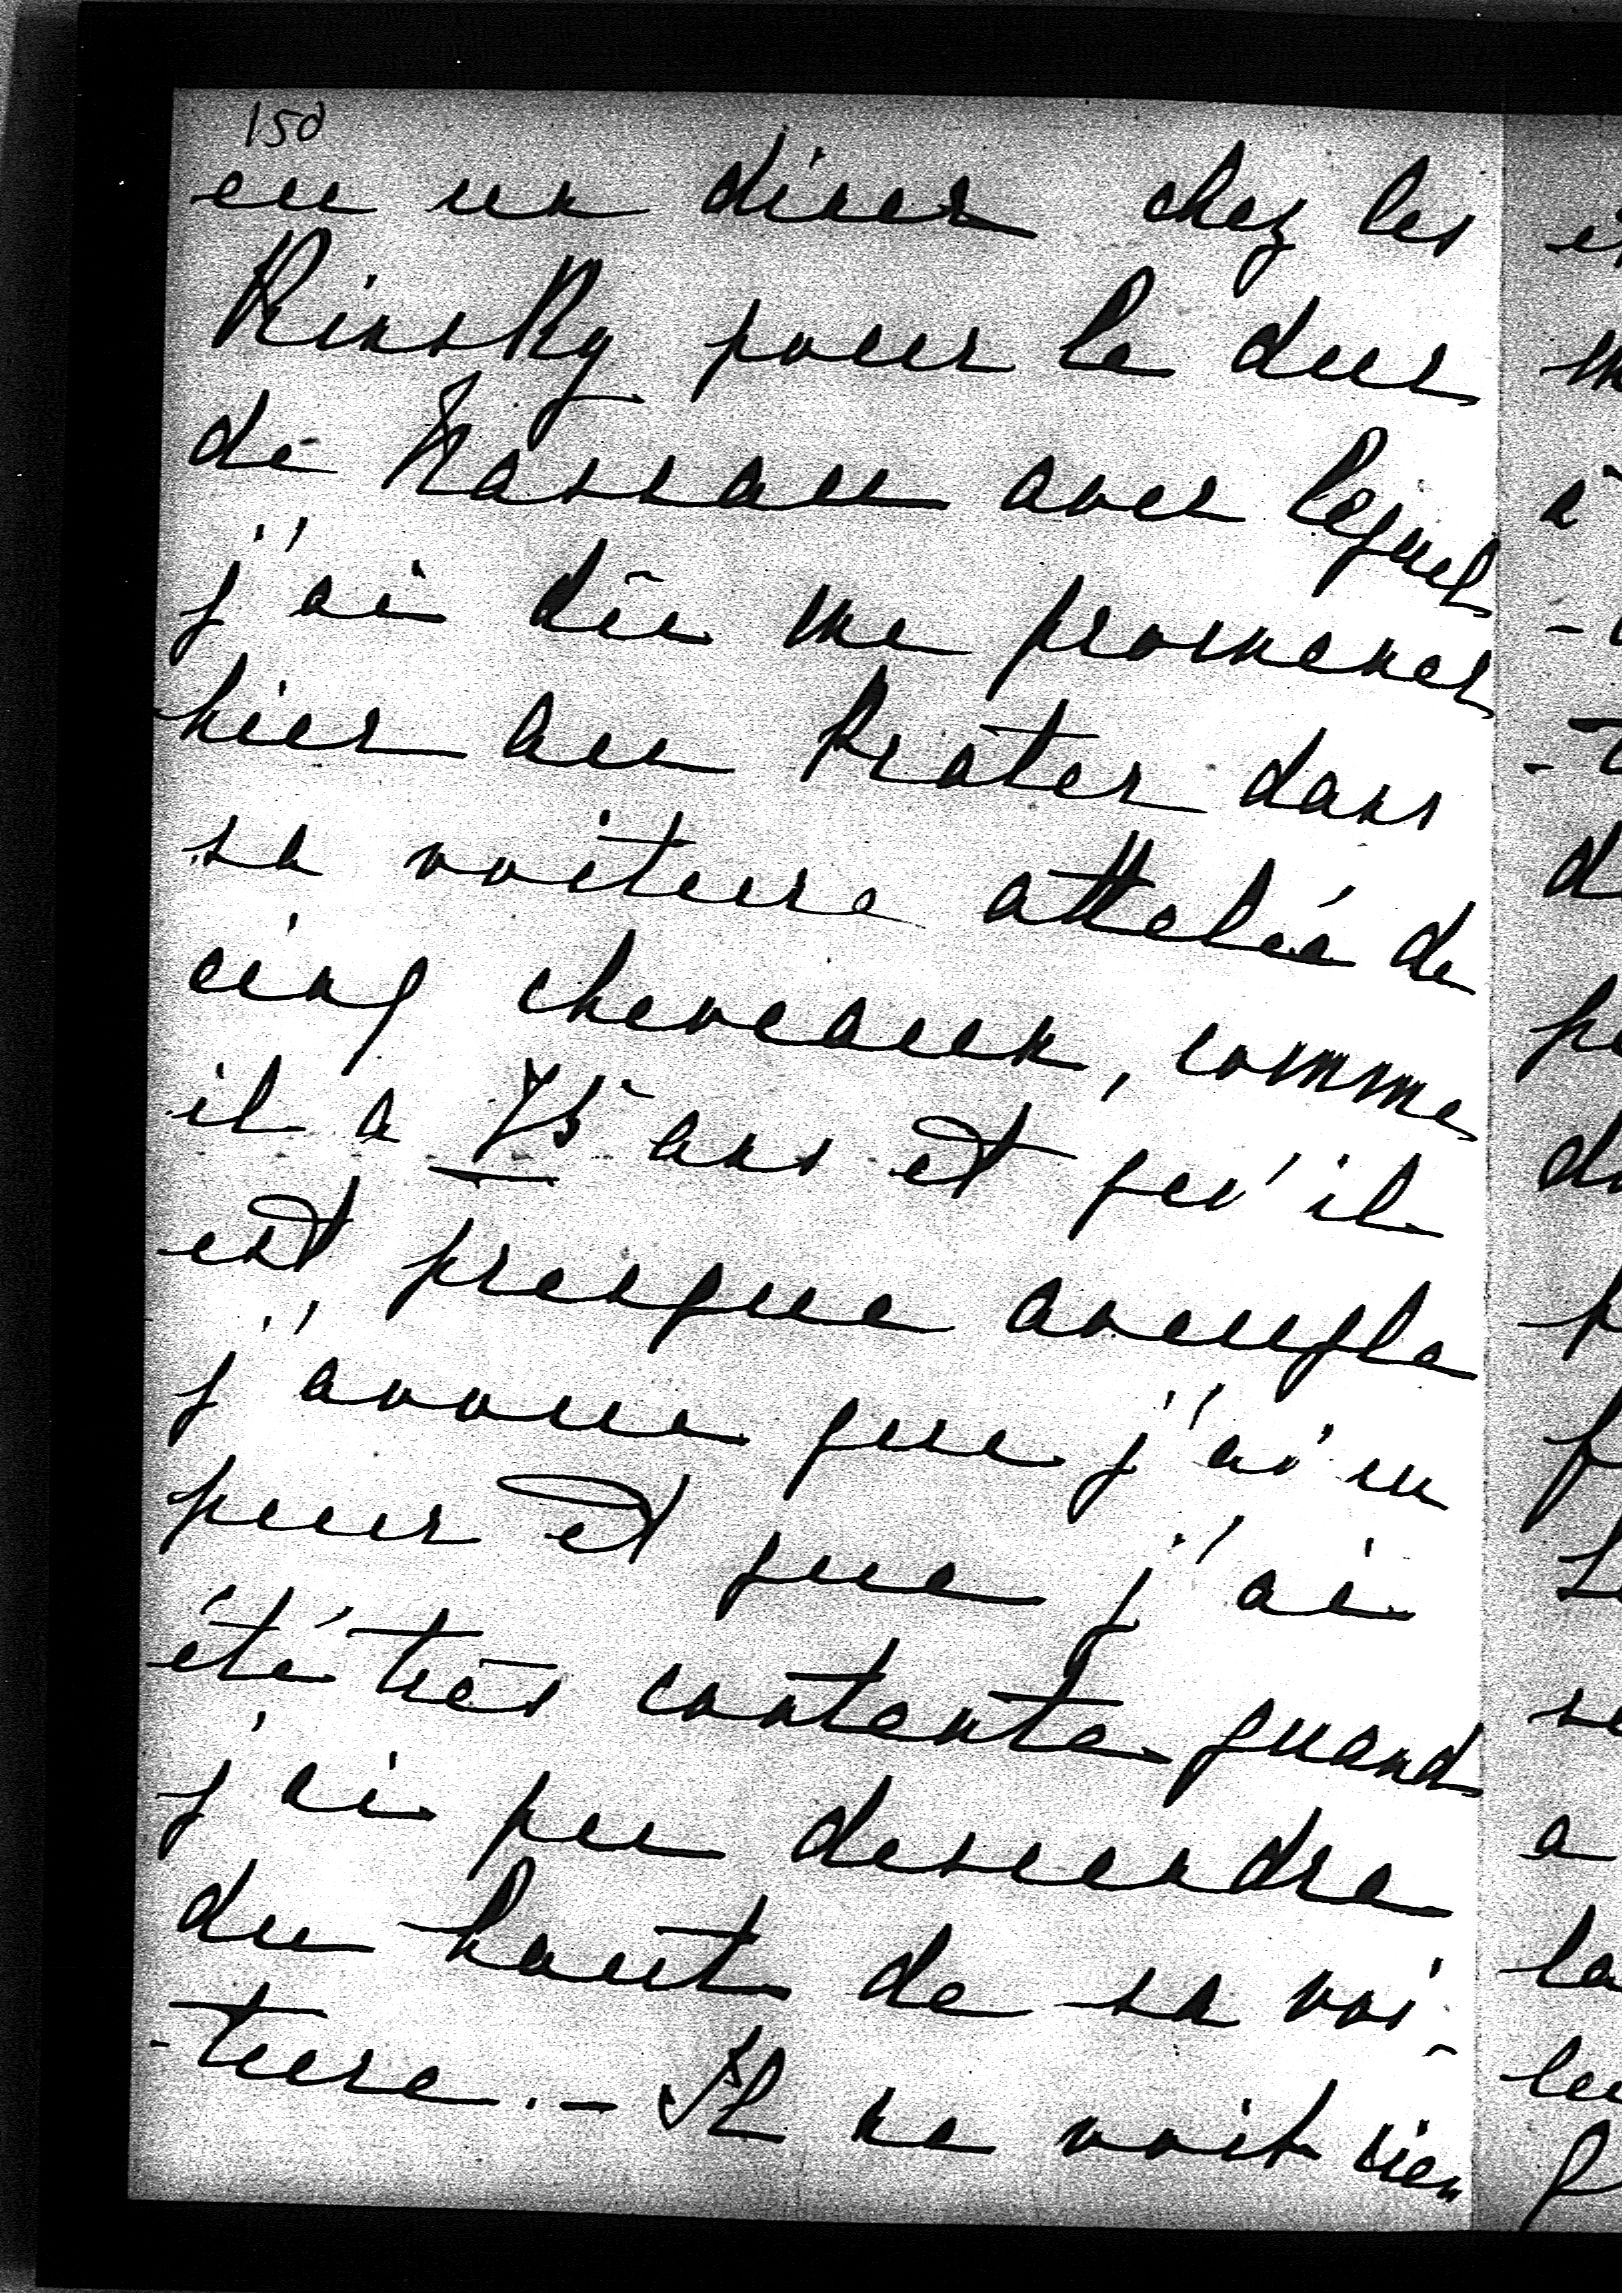 150
eu un diner chez les
Kinsky pour le duc
de Nassau avec lequel
j'ai dû me promener
hier au Prater dans
sa voiture attelée de
cinq cheveaux, comme
il a 75 ans et qu'il
est presque aveugle
j'avoue que j'ai eu
peur et que j'ai
été très contente quand
j'ai pu descendre
du haut de sa voi-
-ture. - Il ne voit rien